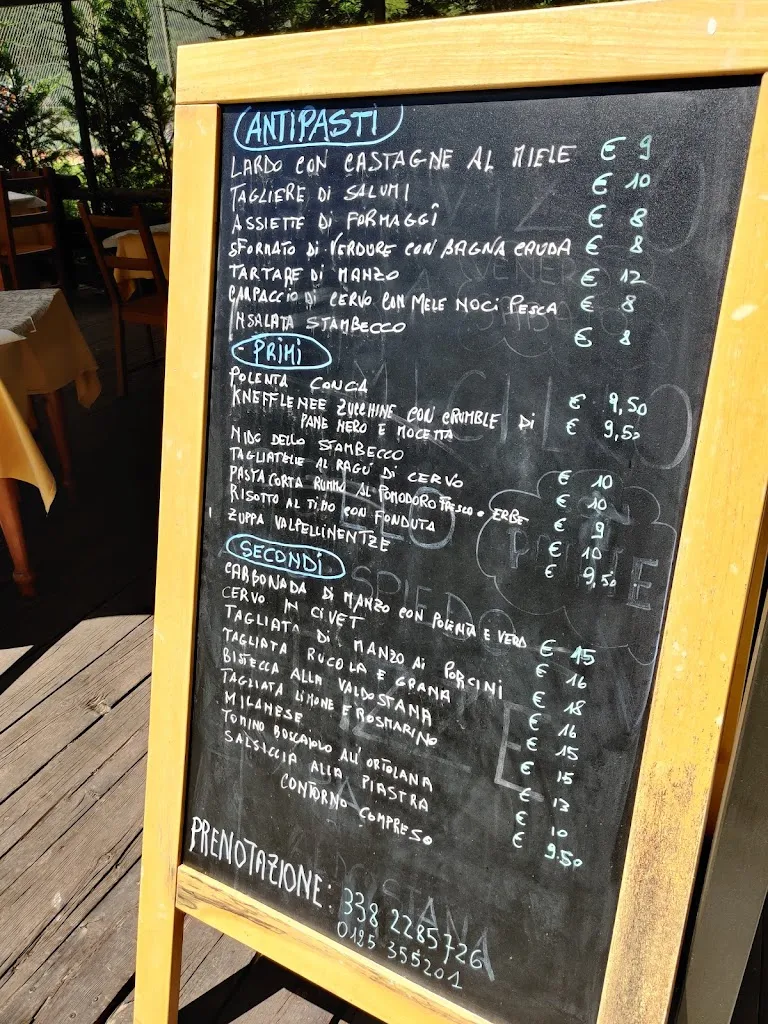 ANTIPASTI
LARDO CON CASTAGNE AL MIELE € 9
TAGLIERE DI SALUMI € 10
ASSIETTE DI FORMAGGI € 8
SFORMATO DI VERDURE CON BAGNA CAUDA € 8
TARTARE DI MANZO € 12
CARPACCIO DI CERVO CON MELE NOCI PESCA € 8
INSALATA STAMBECCO € 8
- PRIMI
POLENTA CONCIA € 9,50
KNEFFLENEE ZUCCHINE CON CRUMBLE DI € 9,50
PANE NERO E MOCETTA
NIDO DELLO STAMBECCO € 10
TAGLIATELLE AL RAGÙ DI CERVO € 10
PASTA CORTA RUMMO AL POMODORO FRESCO E ERBE € 9
RISOTTO AL TIMO CON FONDUTA € 10
ZUPPA VALPELLINENTZE € 9,50
SECONDI
CARBONADA DI MANZO CON POLENTA E VERD € 15
CERVO IN CIVET € 16
TAGLIATA DI MANZO AI PORCINI € 18
TAGLIATA RUCOLA E GRANA € 16
BISTECCA ALLA VALDOSTANA € 15
TAGLIATA LIMONE E ROSMARINO € 15
MILANESE € 13
TOMINO BOSCAIOLO ALL'ORTOLANA € 10
SALSICCIA ALLA PIASTRA € 9.50
CONTORNO COMPRESO
PRENOTAZIONE: 338 2285726
0125 355201